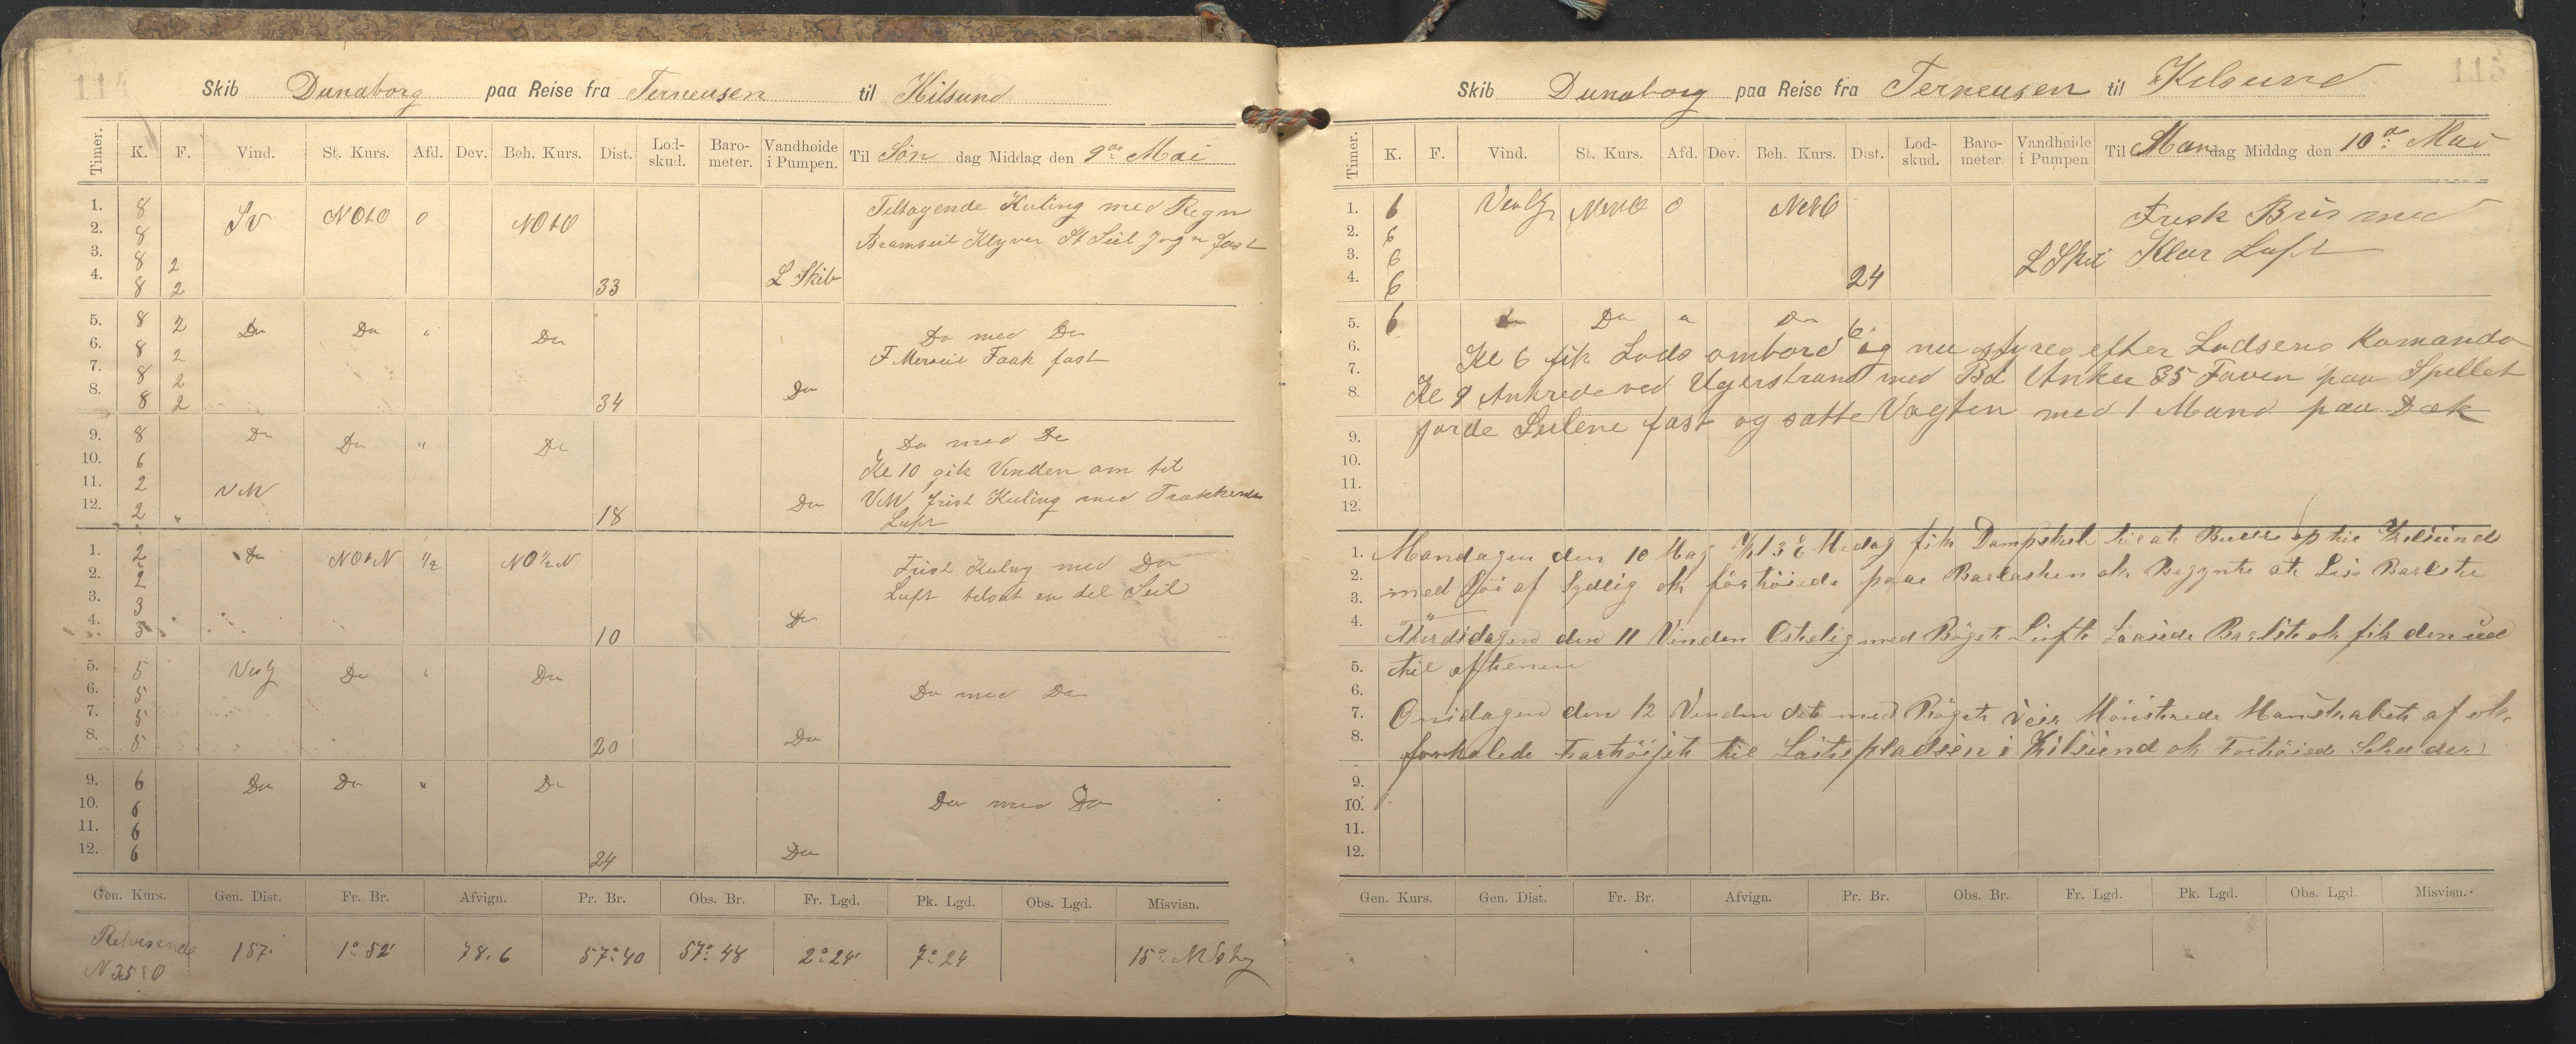 114
Skib Dunaborg paa Reise fra Terneusen til Kilsund
Timer. K. F. Vind. St. Kurs. Afd. Dev. Beh. Kurs. Dist. Lod-skud. Baro-meter. Vandhøide i Pumpen. Til Søn dag Middag den 9de Mai
1. 8 SV NOtO 0 NOtO Tiltagende Kuling med Regn
2. 8 Bramseil Klyver St Seil Jagn fast
3. 8 2
4. 8 2 33 L Skib
5. 8 2 Do Do " Do Do med Do
6. 8 2 F Merseil Faak fast
7. 8 2
8. 8 2 34 Do
9. 8 Do Do " Do Do med Do
10. 6 Kl 10 gik Vinden om til
11. 2 VNV
12. 2 18 Do Frisk Kuling med Trækkende
Luft
1. 2 Do NOtN 1/2 NO 1/2 N Frisk Kuling med Do
2. 2 Luft tilsat en del Seil
3. 3
4. 3 10 Do
5. 5 Do " Do
6. 5 Do med Do
7. 5
8. 5 20 Do
9. 6 Do Do " Do
10. 6 Do med Do
11. 6
12. 6 24 Do
Gen. Kurs. Gen. Dist. Fr. Br. Afvign. Pr. Br. Obs. Br. Fr. Lgd. Pk. Lgd. Obs. Lgd. Misvisn.
Retvisende 157. 1° 52' 78.6 57° 40 57° 48 2° 24' 7° 24 15°
N 35° O
115
Skib Dunaborg paa Reise fra Terneusen til Kilsund
Timer. K. F. Vind. St. Kurs. Afd. Dev. Beh. Kurs. Dist. Lod-skud. Baro-meter. Vandhøide i Pumpen Til Mandag Middag den 10de Mai
1. 6 0 Frisk Bris med
2. 6
3. 6 L Skib Klar Luft
4. 6 24
5. 6 Do Do " Do 6
6. Kl 6 fik Lods ombord og nu styres efter Lodsens Komando
7. Kl 9 Ankrede ved med Bd Anker 35 Faven paa Spillet
8. gjorde Seilene fast og satte Vagten med 1 Mand paa Dæk
9.
10.
11.
12.
1. Mandagen den 10 Maj Kl 3 Medag fik Dampskib til at op til Kilsund
2. med af Sydlig ok førtøiede paa Barlasten ok Begynte at Barlste
3.
4. den 11 Vinden Ostelig med Bøget Lüft Barlst ok fik den ud
5. til aftenen
6.
7. Onsdagen den 12 Vinden det med Bøget Veir Mönstrede Manskabet af ok
8. forhalede Fartöijet til Kilsund ok
9.
10.
11.
12.
Gen. Kurs. Gen. Dist. Fr. Br. Afvign. Pr. Br. Obs. Br. Fr. Lgd. Pk. Lgd. Obs. Lgd. Misvisn.